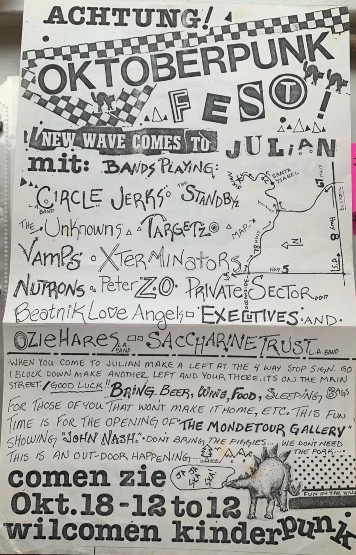 ACHTUNG!
OKTOBERPUNK
FEST!
NEW WAVE COMES TO JULIAN
mit: BANDS PLAYING:
CIRCLE JERKS · THE STANDBYZ
BAND
THE UNKNOWNS · TARGETZ
VAMPS · XTERMINATORS
NUTRONS · PETER Z.O. PRIVATE SECTOR...
BEATNIK LOVE ANGELS · EXECUTIVES · AND ·
OZIE HARES L.A. BAND · SACCHARINE TRUST L.A. BAND
SANTA YSABEL
MAP
78 HWY
N
HWY 8
HWY 5
S.D.
· WHEN YOU COME TO JULIAN MAKE A LEFT AT THE 4 WAY STOP SIGN. GO
1 BLOCK DOWN MAKE ANOTHER LEFT AND YOUR THERE. ITS ON THE MAIN
STREET. / GOOD LUCK!! BRING, BEER, WINE, FOOD, SLEEPING BAGS
FOR THOSE OF YOU THAT WONT MAKE IT HOME, ETC. THIS FUN
TIME IS FOR THE OPENING OF "THE MONDETOUR GALLERY"
SHOWING, "JOHN NASH". · DON'T BRING THE PIGGIES... WE DONT NEED
THIS IS AN OUT-DOOR HAPPENING... THE PORK....
comen zie
FUN IN THE HILLS
Okt. 18 - 12 to 12
wilcomen kinder punk